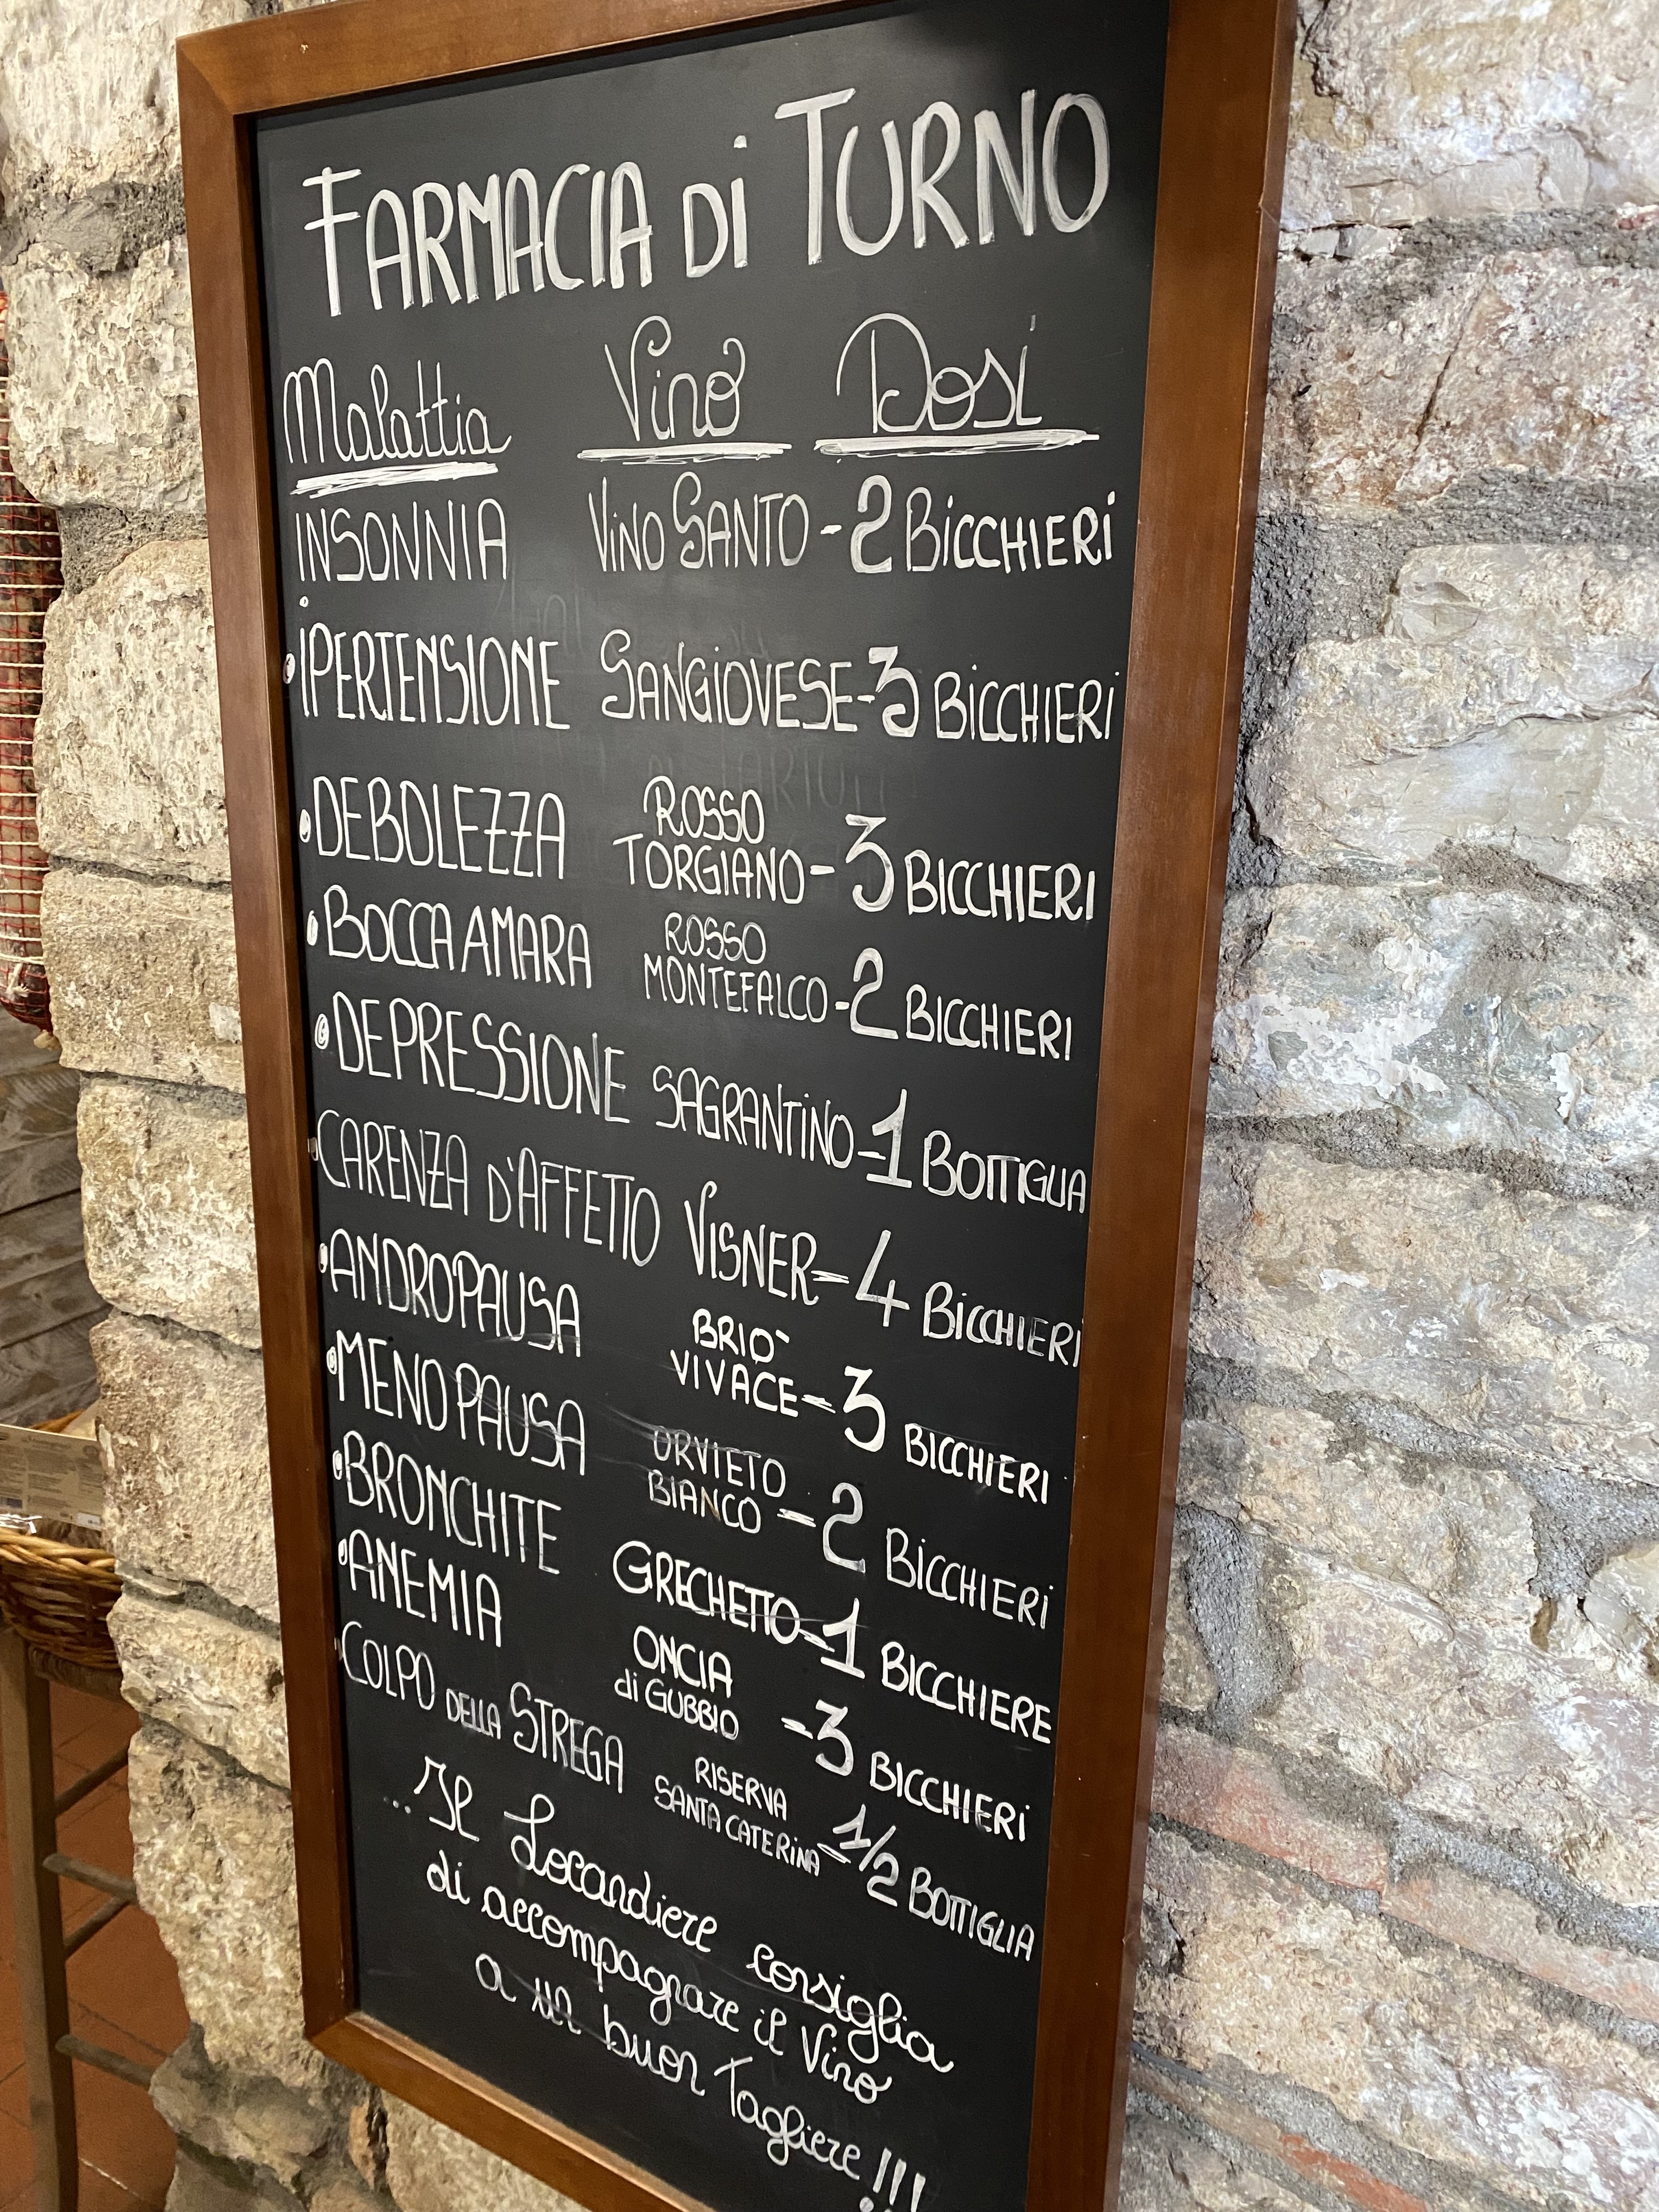 FARMACIA Di TURNO
Malattia Vino Dosi
INSONNIA ViNO SANTO - 2 BiCCHIERi
iPERTENSIONE SANGiOVESE - 3 BiCCHIERi
DEBOLEZZA ROSSO TORGIANO - 3 BICCHIERI
BOCCA AMARA ROSSO MONTEFALCO - 2 BICCHIERI
DEPRESSIONE SAGRANTiNO - 1 BOTTIGLIA
CARENZA D'AFFETTO VISNER - 4 BiCCHIERi
ANDROPAUSA BRIO` VIVACE - 3 BICCHIERI
MENOPAUSA ORVIETO BIANCO - 2 BiCCHIERi
BRONCHITE GRECHETTO - 1 BICCHIERE
ANEMIA ONCIA di GUBBIO - 3 BICCHIERi
COLPO DELLA STREGA RISERVA SANTA CATERiNA - 1/2 BOTTIGLIA
...Il Locandiere consiglia
di accompagnare il Vino
a un buon Tagliere !!!